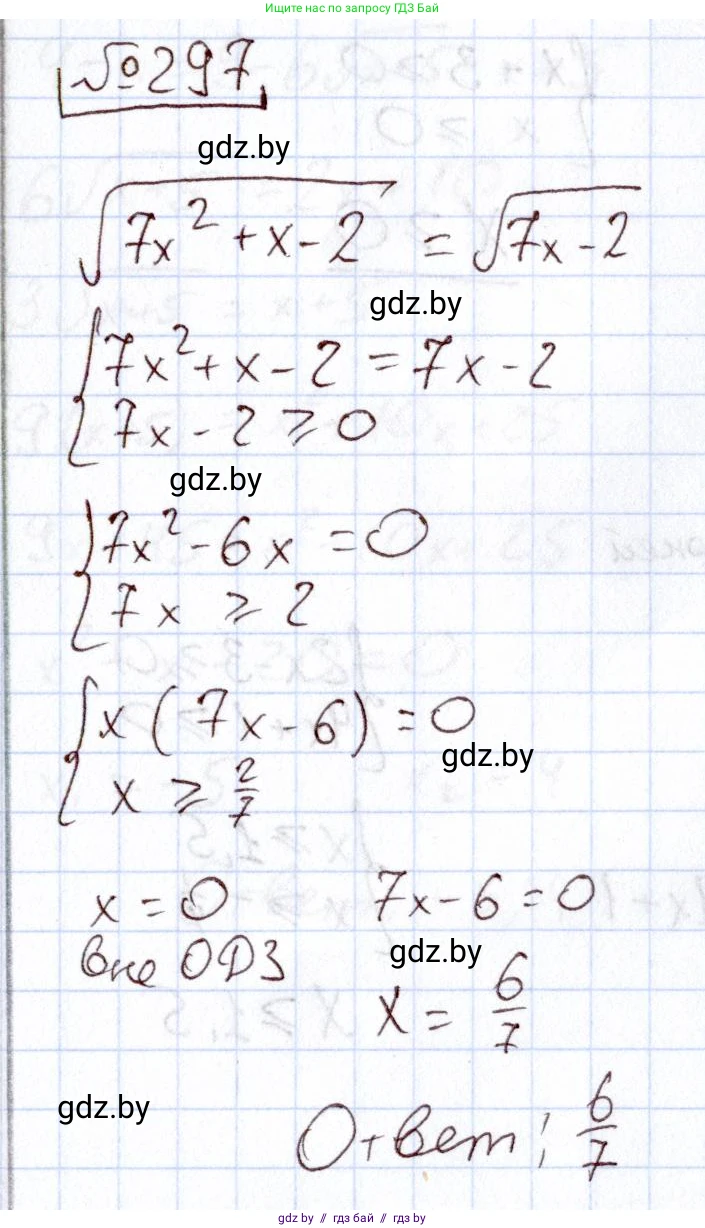 Ищите нас по запросу ГДЗ Бай
№297
gdz.by
√(7x² + x - 2) = √(7x - 2)
gdz.by
{ 7x² + x - 2 = 7x - 2
7x - 2 ⩾ 0
gdz.by
{ 7x² - 6x = 0
7x ⩾ 2
{ x (7x - 6) = 0
gdz.by
x ⩾ 2/7
x = 0 7x - 6 = 0
вне ОДЗ gdz.by
x = 6/7
gdz.by
Ответ: 6/7
gdz.by // гдз бай // gdz.by